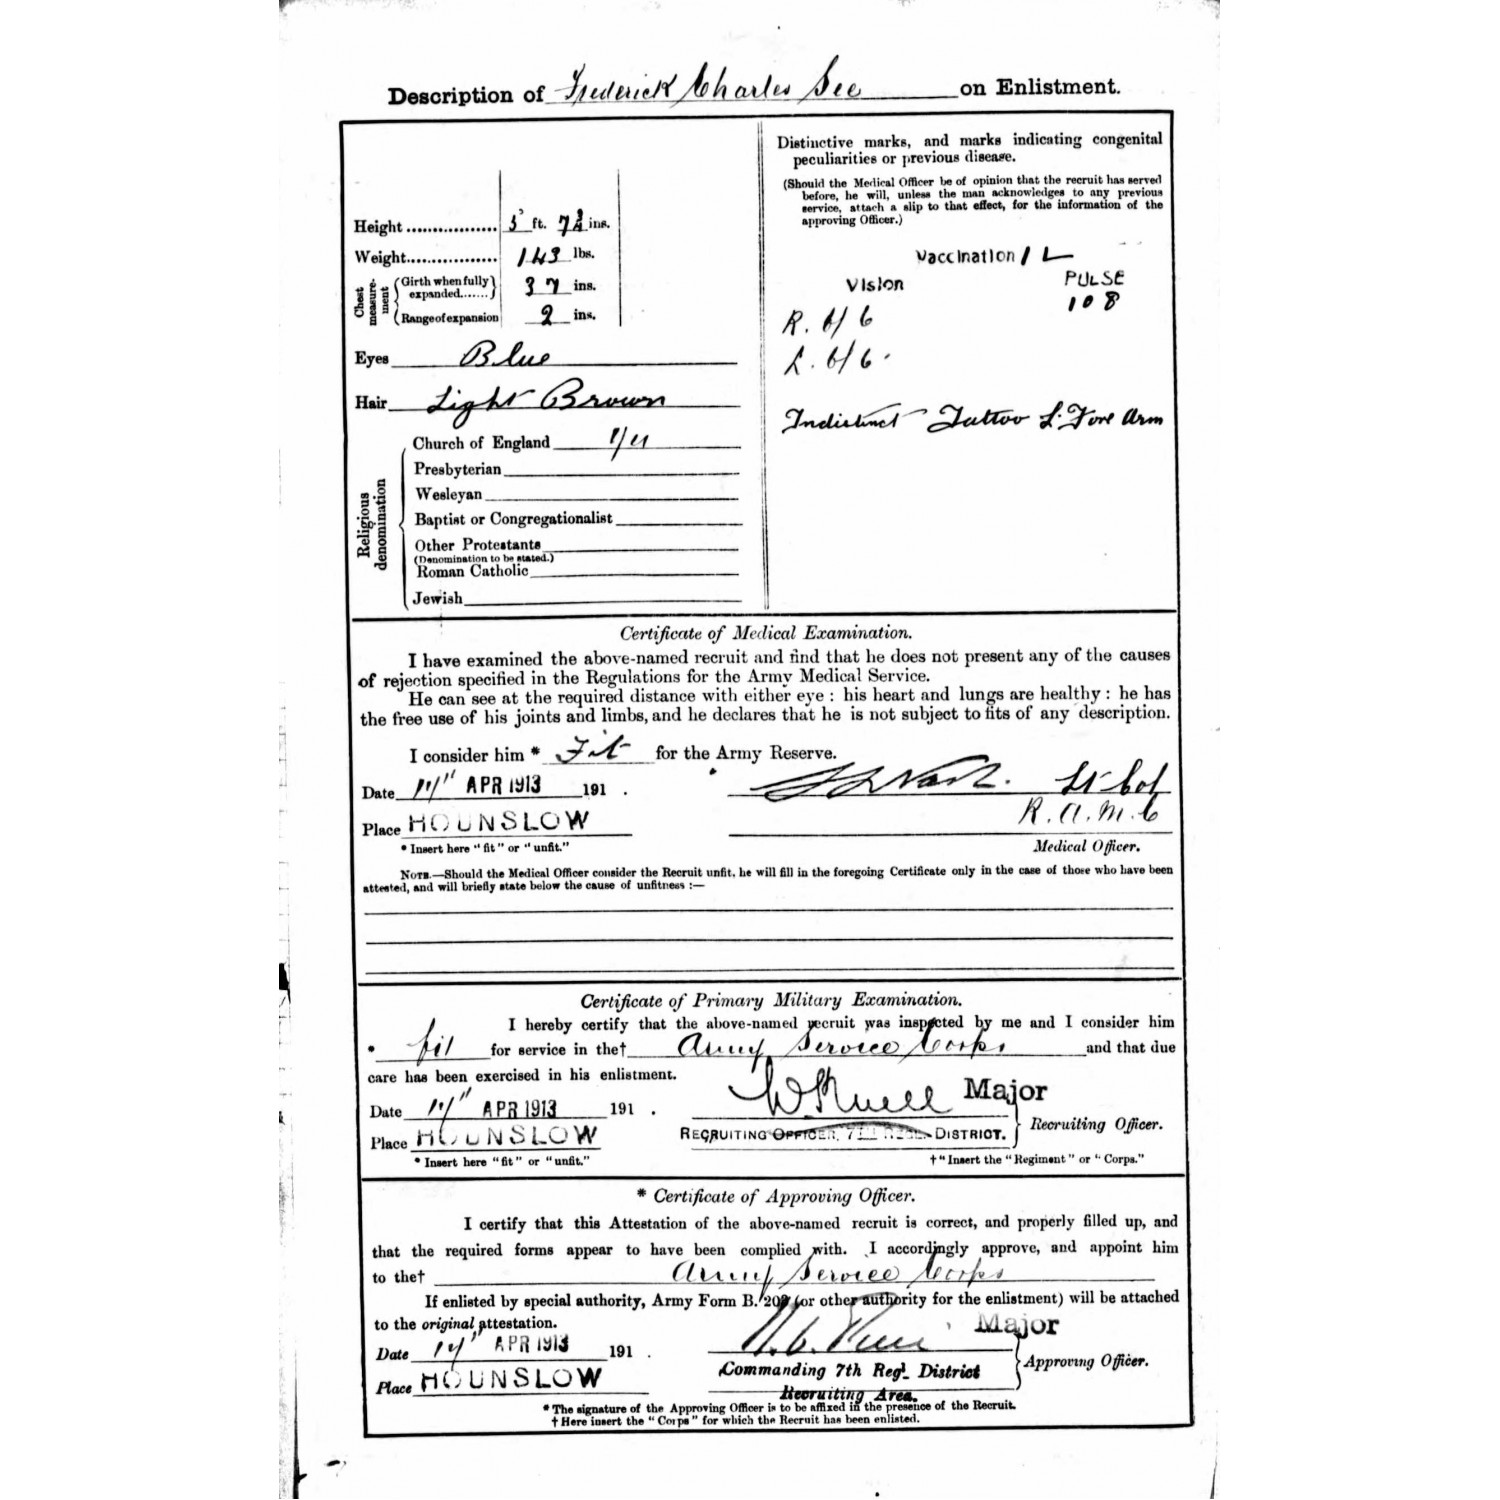 Description of Frederick Charles See on Enlistment.
Height ................. 5 ft. 7¾ ins.
Weight................. 143 lbs.
Chest measurement
Girth when fully expanded....... 37 ins.
Range of expansion 2 ins.
Eyes Blue
Hair Light Brown
Religious denomination
Church of England
Presbyterian
Wesleyan
Baptist or Congregationalist
Other Protestants
(Denomination to be stated.)
Roman Catholic
Jewish
Distinctive marks, and marks indicating congenital
peculiarities or previous disease.
(Should the Medical Officer be of opinion that the recruit has served
before, he will, unless the man acknowledges to any previous
service, attach a slip to that effect, for the information of the
approving Officer.)
Vaccination 1 L
Vision PULSE
108
R. 6/6
L. 6/6.
Indistinct Tattoo L. Fore Arm
Certificate of Medical Examination.
I have examined the above-named recruit and find that he does not present any of the causes
of rejection specified in the Regulations for the Army Medical Service.
He can see at the required distance with either eye : his heart and lungs are healthy : he has
the free use of his joints and limbs, and he declares that he is not subject to fits of any description.
I consider him * Fit for the Army Reserve.
Date APR 1913 191 .
Lt Col
R.A.M.C
Place HOUNSLOW
* Insert here " fit " or " unfit."
Medical Officer.
NOTE.—Should the Medical Officer consider the Recruit unfit, he will fill in the foregoing Certificate only in the case of those who have been
attested, and will briefly state below the cause of unfitness :—
Certificate of Primary Military Examination.
I hereby certify that the above-named recruit was inspected by me and I consider him
* fit for service in the† Army Service Corps and that due
care has been exercised in his enlistment.
Major
Date APR 1913 191 .
Recruiting Officer.
Place HOUNSLOW
RECRUITING OFFICER, 7TH REGL DISTRICT.
* Insert here "fit" or "unfit."
† "Insert the "Regiment" or "Corps."
* Certificate of Approving Officer.
I certify that this Attestation of the above-named recruit is correct, and properly filled up, and
that the required forms appear to have been complied with. I accordingly approve, and appoint him
to the† Army Service Corps
If enlisted by special authority, Army Form B. 203 (or other authority for the enlistment) will be attached
to the original attestation.
Major
Date APR 1913 191 .
Approving Officer.
Place HOUNSLOW
Commanding 7th Regl District
Recruiting Area.
* The signature of the Approving Officer is to be affixed in the presence of the Recruit.
† Here insert the "Corps" for which the Recruit has been enlisted.